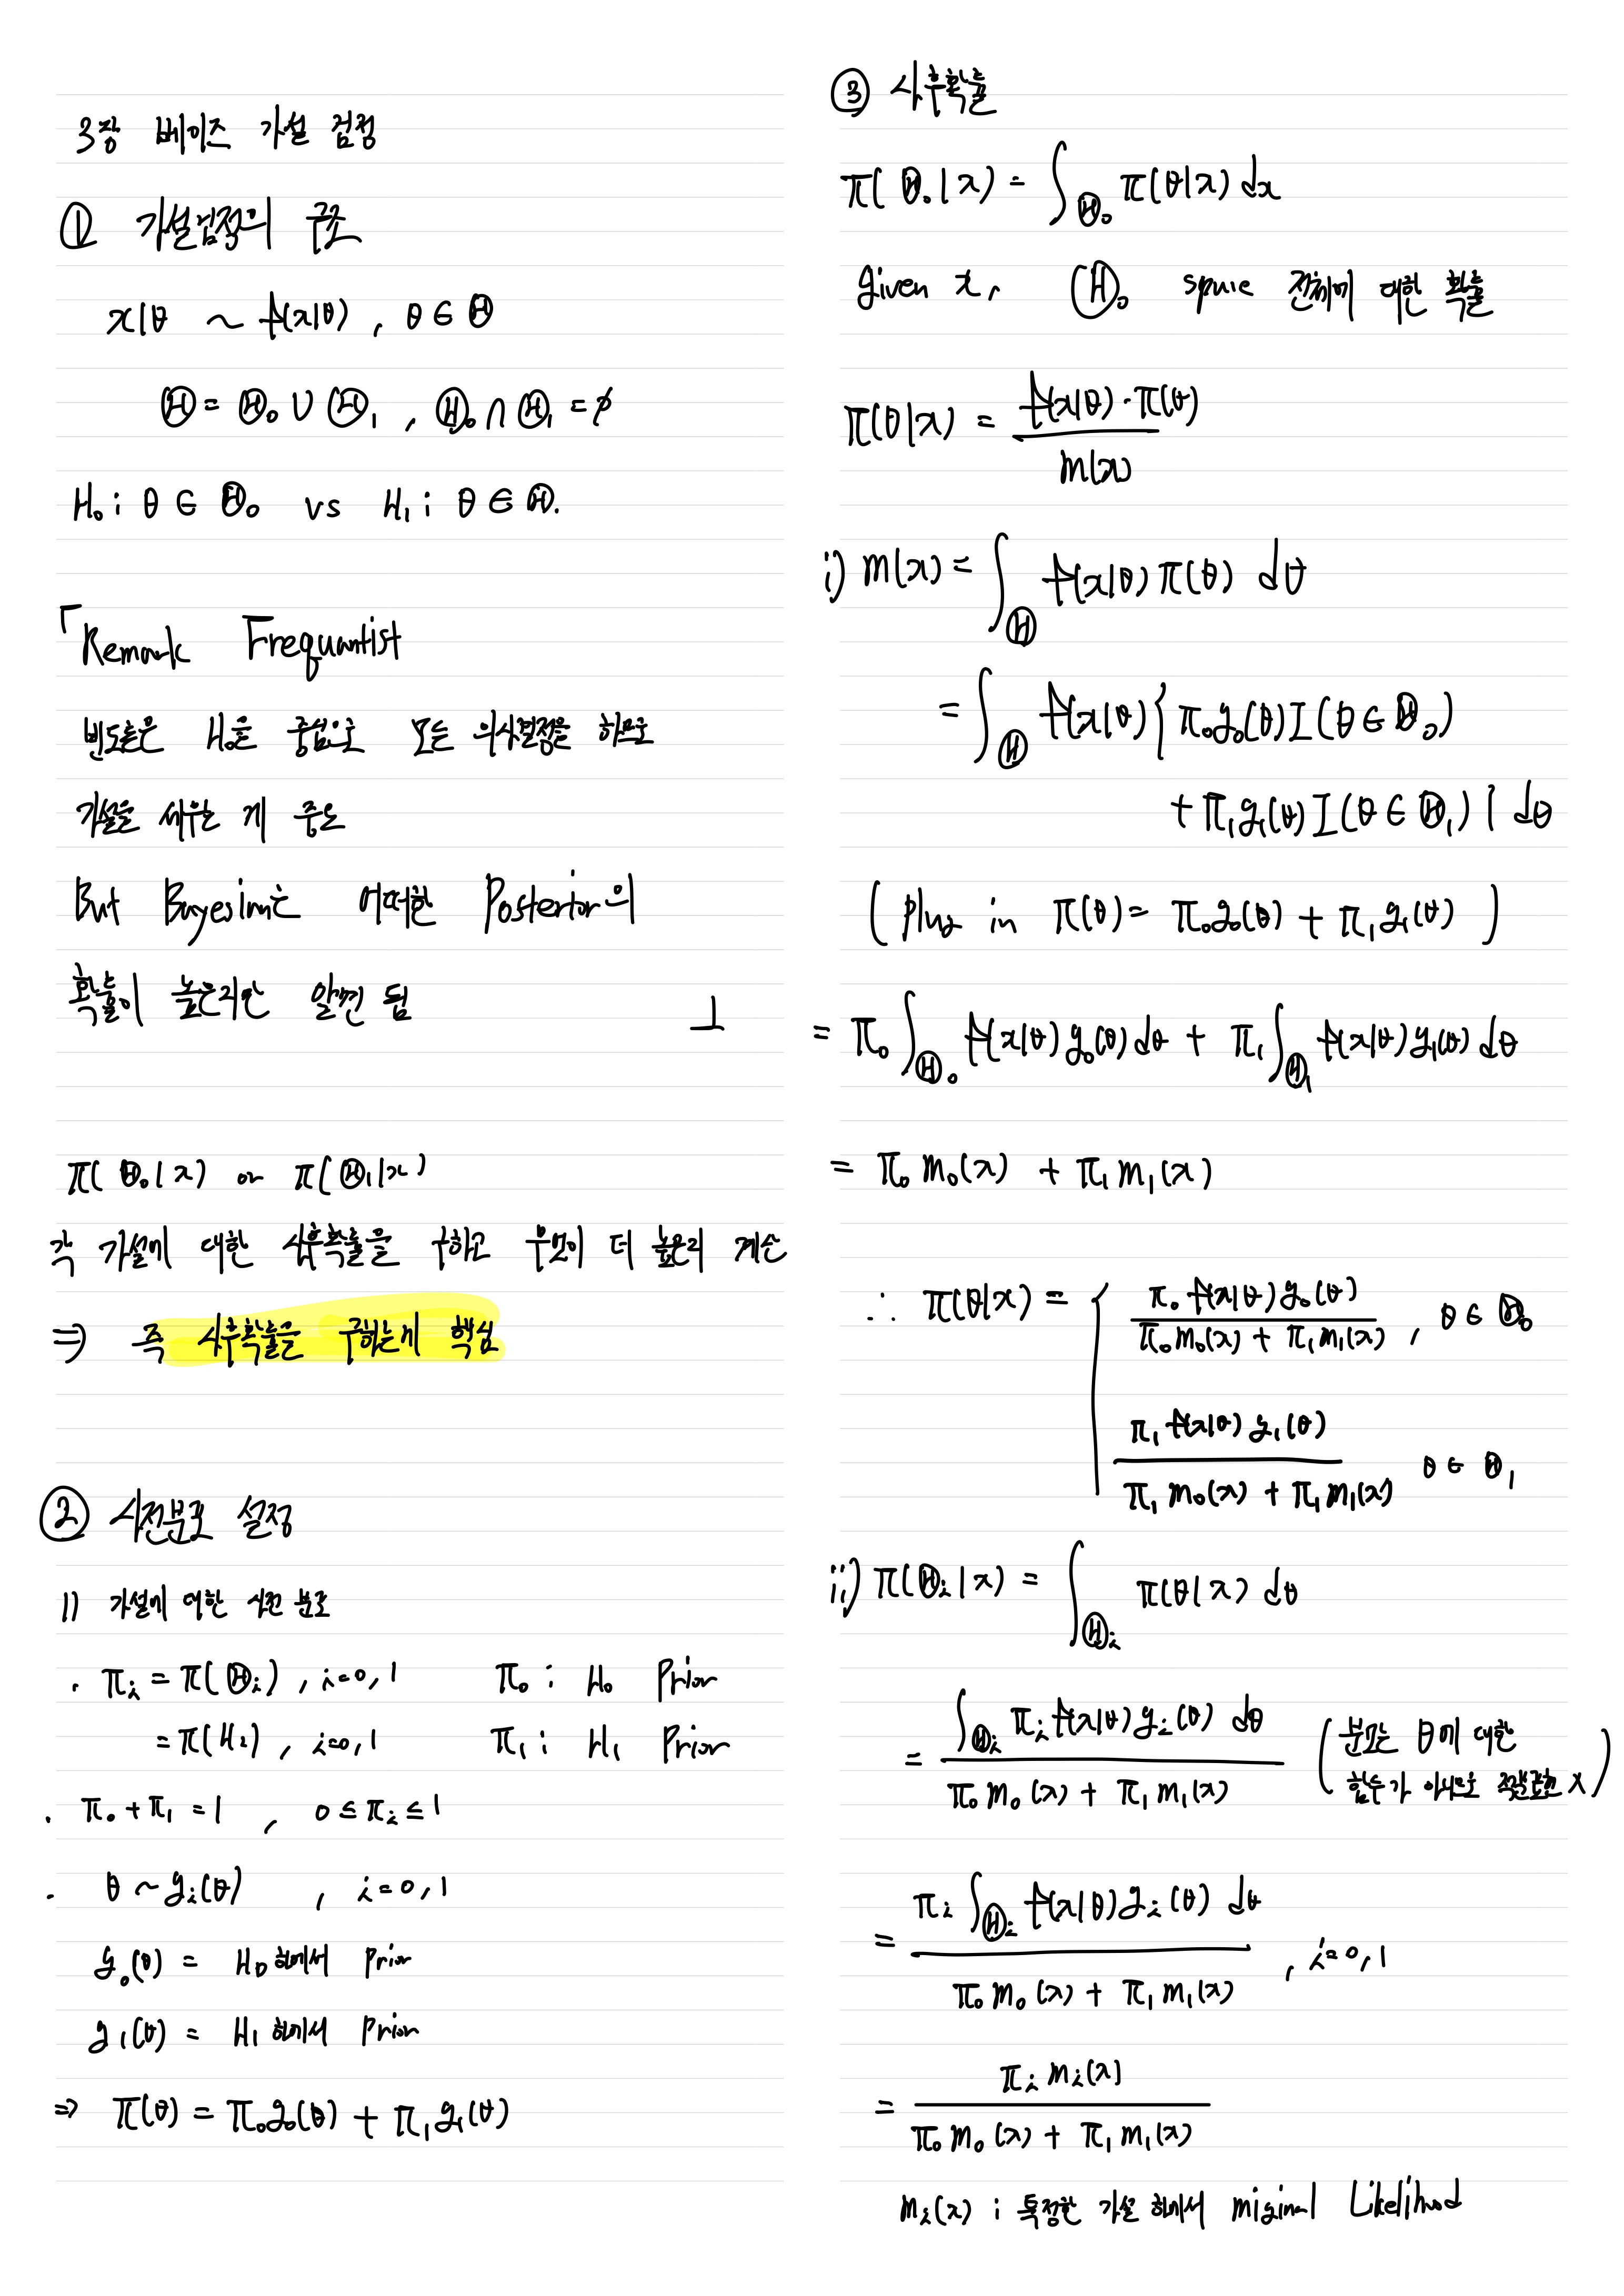 3장 베이즈 가설 검정
① 가설검정의 구조
x|θ ~ f(x|θ), θ ∈ Θ
Θ = Θ₀ ∪ Θ₁, Θ₀ ∩ Θ₁ = ∅
H₀ : θ ∈ Θ₀ vs H₁ : θ ∈ Θ.
「Remark Frequantist
빈도론은 H₀을 중심으로 모든 의사결정을 하므로
가설을 세우는 게 중요
But Bayesian는 어떠한 Posterior의
확률이 높은지만 알면 됨 」
π(Θ₀|x) or π(Θ₁|x)
각 가설에 대한 사후확률을 구하고 무엇이 더 높은지 계산
⇒ 즉 사후확률을 구하는게 핵심
② 사전분포 설정
1) 가설에 대한 사전 분포
· πᵢ = π(Θᵢ), i=0,1 π₀ : H₀ Prior
= π(Hᵢ), i=0,1 π₁ : H₁ Prior
· π₀ + π₁ = 1, 0 ≤ πᵢ ≤ 1
· θ ~ gᵢ(θ), i=0,1
g₀(θ) = H₀ 하에서 Prior
g₁(θ) = H₁ 하에서 Prior
⇒ π(θ) = π₀g₀(θ) + π₁g₁(θ)
③ 사후확률
π(Θ₀|x) = ∫_Θ₀ π(θ|x) dx
given x, Θ₀ 전체에 대한 확률
π(θ|x) = f(x|θ)·π(θ) / m(x)
i) m(x) = ∫_Θ f(x|θ)π(θ) dθ
= ∫_Θ f(x|θ){π₀g₀(θ)I(θ ∈ Θ₀)
+ π₁g₁(θ)I(θ ∈ Θ₁)} dθ
(Plug in π(θ) = π₀g₀(θ) + π₁g₁(θ))
= π₀∫_Θ₀ f(x|θ)g₀(θ)dθ + π₁∫_Θ₁ f(x|θ)g₁(θ)dθ
= π₀m₀(x) + π₁m₁(x)
∴ π(θ|x) = { π₀f(x|θ)g₀(θ) / π₀m₀(x) + π₁m₁(x), θ ∈ Θ₀
π₁f(x|θ)g₁(θ) / π₁m₀(x) + π₁m₁(x) θ ∈ Θ₁
ii) π(Θᵢ|x) = ∫_Θᵢ π(θ|x) dθ
= ∫_Θᵢ πᵢf(x|θ)gᵢ(θ) dθ / π₀m₀(x) + π₁m₁(x) (분모는 θ에 대한
함수가 아니므로 적분 X)
= πᵢ∫_Θᵢ f(x|θ)gᵢ(θ) dθ / π₀m₀(x) + π₁m₁(x), i=0,1
= πᵢmᵢ(x) / π₀m₀(x) + π₁m₁(x)
mᵢ(x) : 특정한 가설 하에서 miginal Likelihood